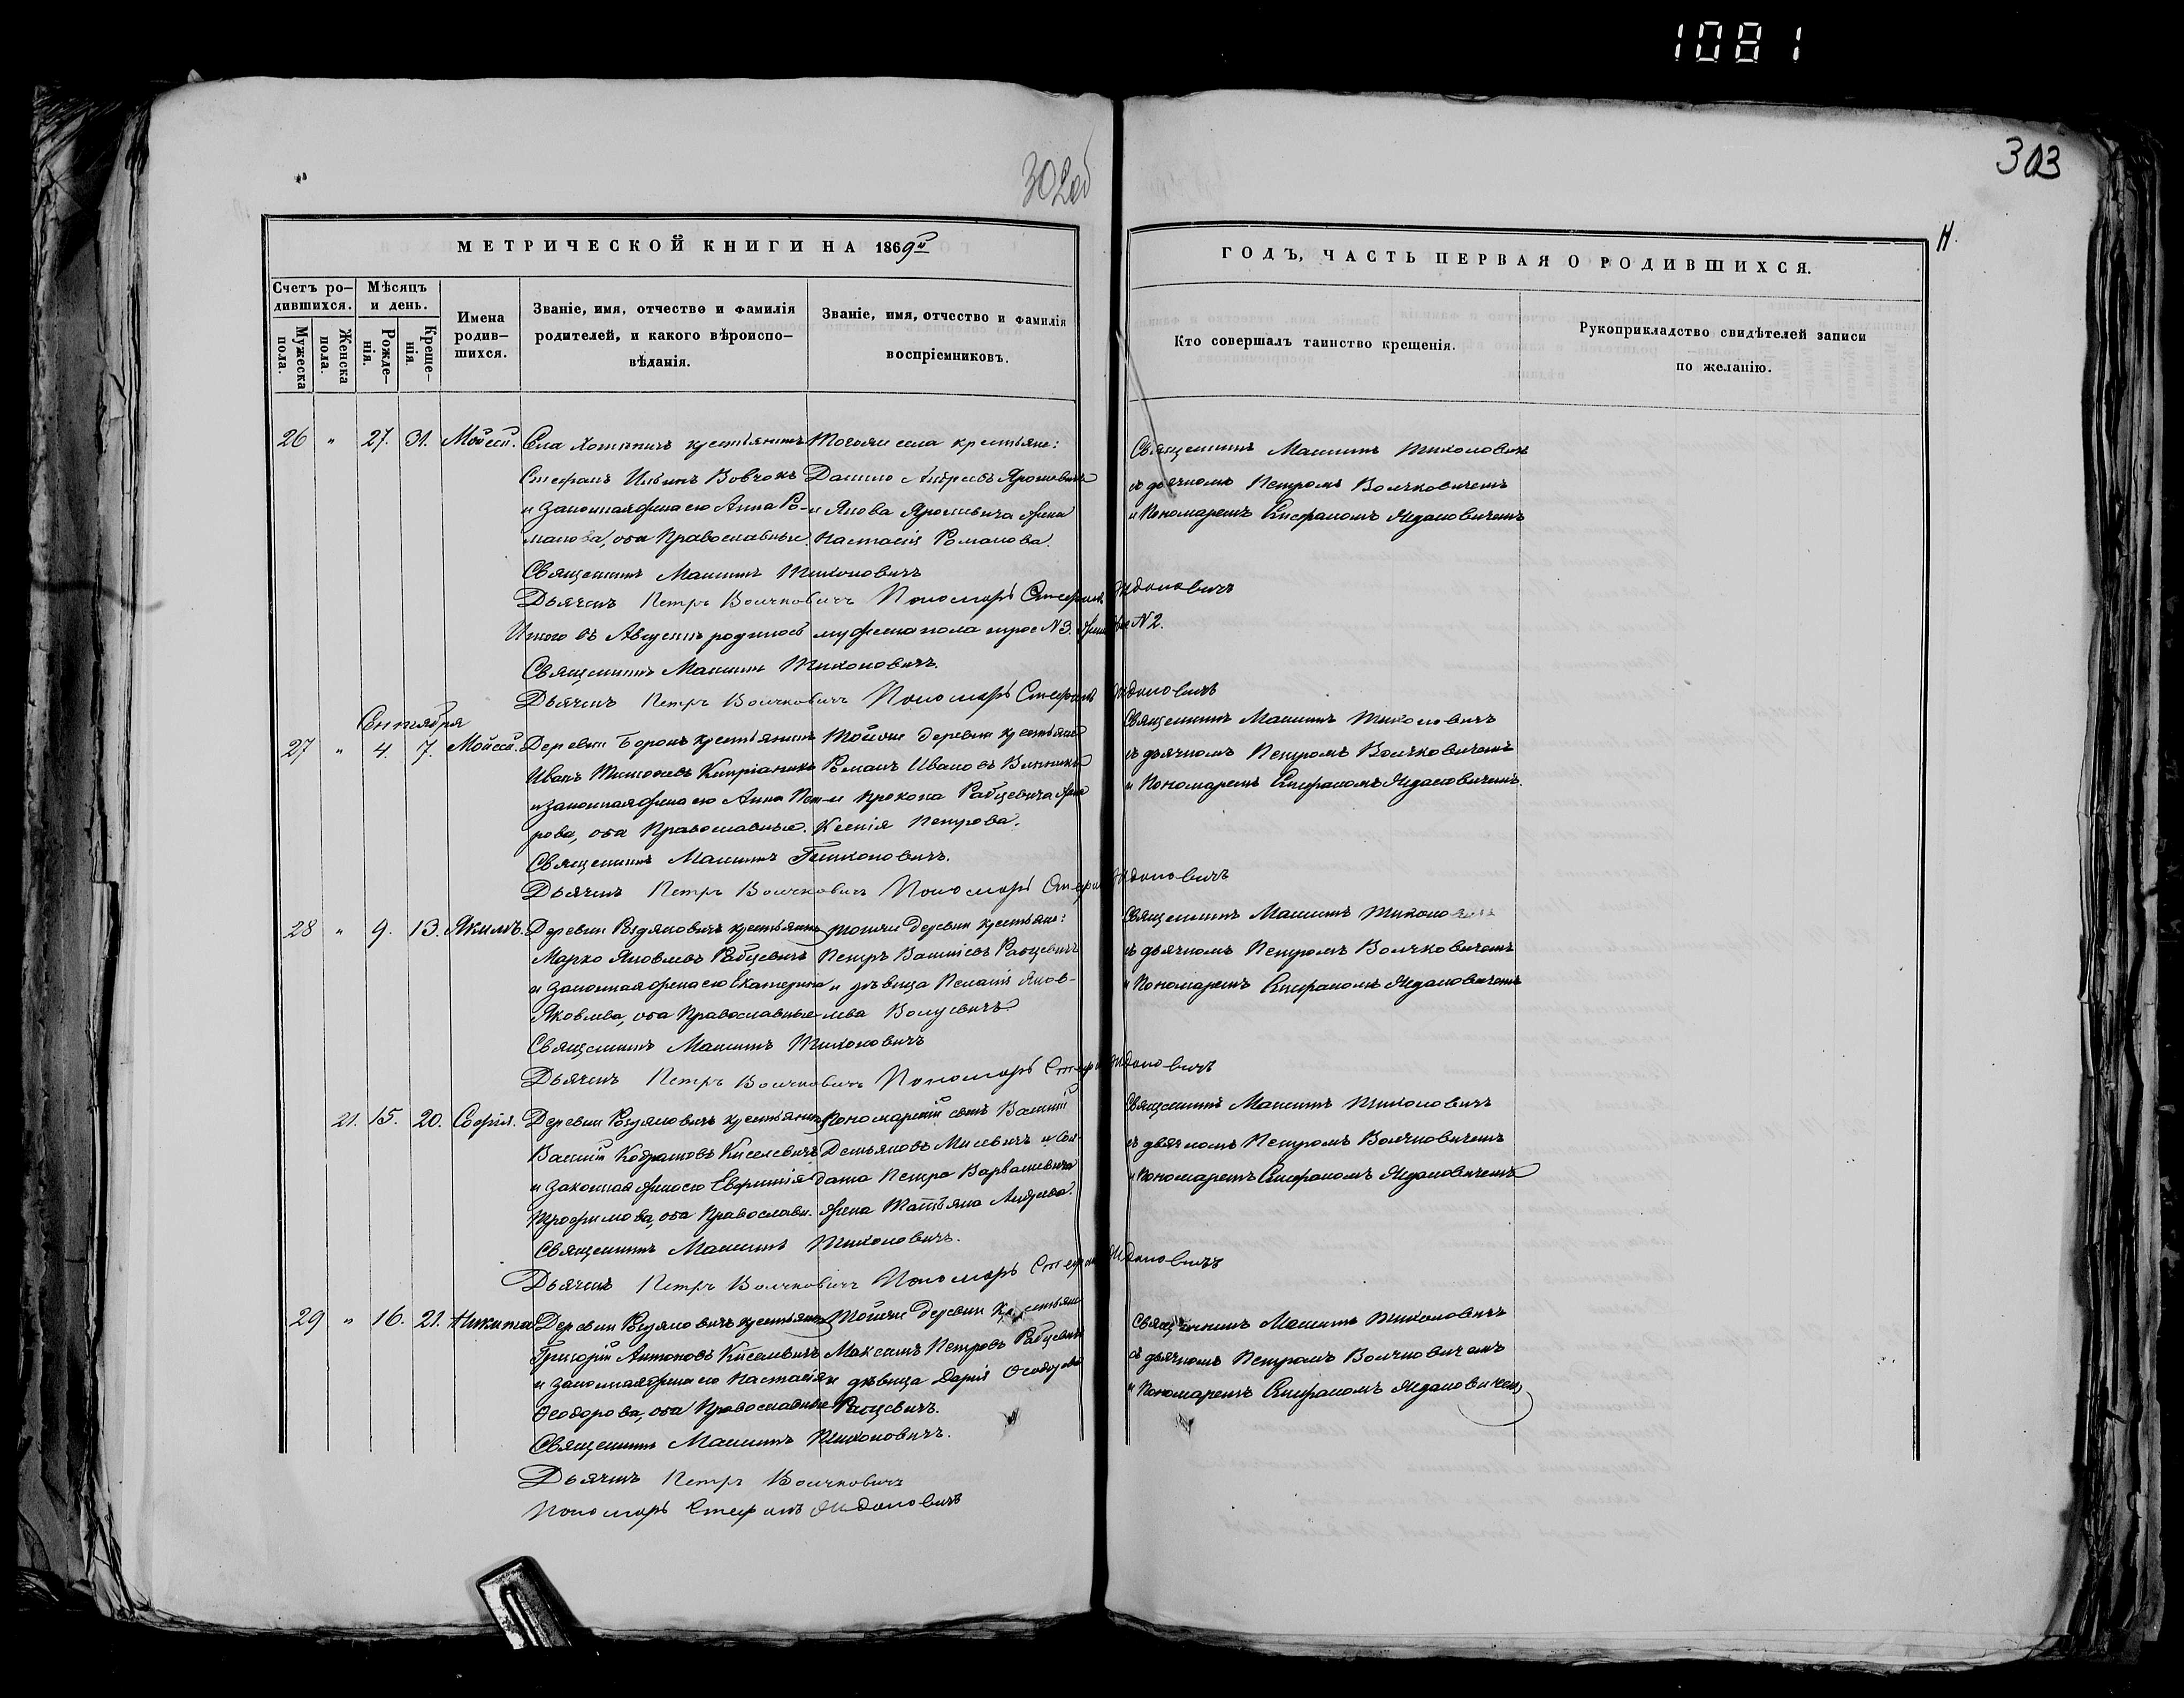 1081
302об
303
Н.
МЕТРИЧЕСКОЙ КНИГИ НА 1869й
Счетъ ро-
дившихся.
Мужеска
пола.
Женска
пола.
Мѣсяцъ
и день.
Рожде-
нія.
Креще-
нія.
Имена
родив-
шихся.
Званіе, имя, отчество и фамилія
родителей, и какого вѣроиспо-
вѣданія.
Званіе, имя, отчество и фамилія
воспріемниковъ.
26 " 27. 31. Мойсей.
Села крестьянинъ
Стефанъ Ильинъ Вовчокъ
и законная жена его Анна Ро-
манова, оба Православные.
Тогоже села крестьяне:
Данило Андреевъ Ярошевичъ
и Якова Ярошевича жена
Настасія Романова.
Священникъ Тихоновичъ
Дьячекъ Петръ Волчковичъ Пономарь Стефанъ Ждановичъ
Итого въ Августѣ родилось мужеска пола трое №3. №2.
Священникъ Тихоновичъ.
Дьячекъ Петръ Волчковичъ Пономарь Стефанъ Ждановичъ
Сентября
27 " 4. 7. Мойсей.
Деревни крестьянинъ
Иванъ Тимофеевъ
и законная жена его Анна Пет-
рова, оба Православные.
Тойже деревни крестьяне
Романъ Ивановъ
и Прокопа Рабцевича жена
Ксенія Петрова.
Священникъ Тихоновичъ.
Дьячекъ Петръ Волчковичъ Пономарь Стефанъ Ждановичъ
28 " 9. 13. Якимъ.
Деревни крестьянинъ
Марко Яковлевъ Рабцевичъ
и законная жена его Екатерина
Яковлева, оба Православные
тойже деревни крестьяне:
Петръ Рабцевичъ
и дѣвица Яков-
лева
Священникъ Тихоновичъ
Дьячекъ Петръ Волчковичъ Пономарь Стефанъ Ждановичъ
21. 15. 20. Софія.
Деревни крестьянинъ
Василій Киселевичъ
и законная жена его Евфимія
Трофимова, оба Православн.
Пономарскій сынъ Василій
Демьяновъ и сол-
дата Петра
жена Татьяна Андреева.
Священникъ Тихоновичъ.
Дьячекъ Петръ Волчковичъ Пономарь Стефанъ Ждановичъ
29 " 16. 21. Никита
Деревни крестьянинъ
Григорій Антоновъ Киселевичъ
и законная жена его Настасія
Ѳеодорова, оба Православные
Тойже деревни крестьяне
Максимъ Петровъ Рабцевичъ
и дѣвица Дарія Ѳеодорова
Рабцевичъ.
Священникъ Тихоновичъ.
Дьячекъ Петръ Волчковичъ
Пономарь Стефанъ Ждановичъ
ГОДЪ, ЧАСТЬ ПЕРВАЯ О РОДИВШИХСЯ.
Кто совершалъ таинство крещенія.
Рукоприкладство свидѣтелей записи
по желанію.
Священникъ Тихоновичъ
съ дьячкомъ Петромъ Волчковичемъ
и Пономаремъ Стефаномъ Ждановичемъ
Священникъ Тихоновичъ
съ дьячкомъ Петромъ Волчковичемъ
и Пономаремъ Стефаномъ Ждановичемъ.
Священникъ Тихоновичъ
съ дьячкомъ Петромъ Волчковичемъ
и Пономаремъ Стефаномъ Ждановичемъ
Священникъ Тихоновичъ
съ дьячкомъ Петромъ Волчковичемъ
и Пономаремъ Стефаномъ Ждановичемъ
Священникъ Тихоновичъ
съ дьячкомъ Петромъ Волчковичемъ
и Пономаремъ Стефаномъ Ждановичемъ